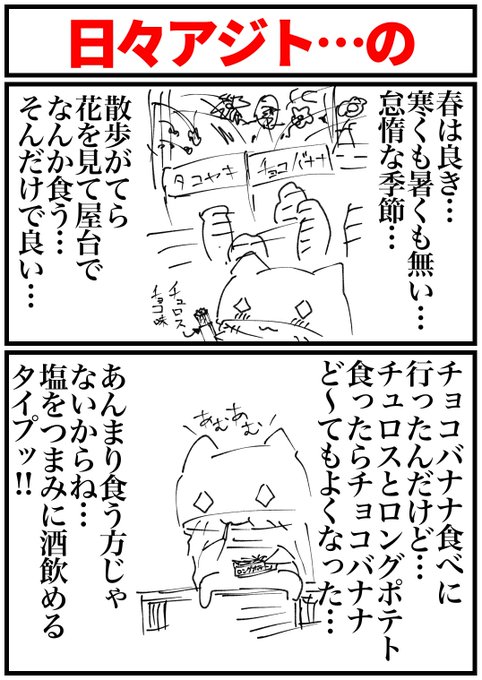 日々アジト…の
春は良き…
寒くも暑くも無い…
怠惰な季節…
チョコバナナ
タコヤキ
散歩がてら
花を見て屋台で
なんか食う…
そんだけで良い…
チュロス
チョコ味
チョコバナナ食べに
行ったんだけど…
チュロスとロングポテト
食ったらチョコバナナ
ど～てもよくなった…
あむあむ
ロングポテト
あんまり食う方じゃ
ないからね…
塩をつまみに酒飲める
タイプッ!!